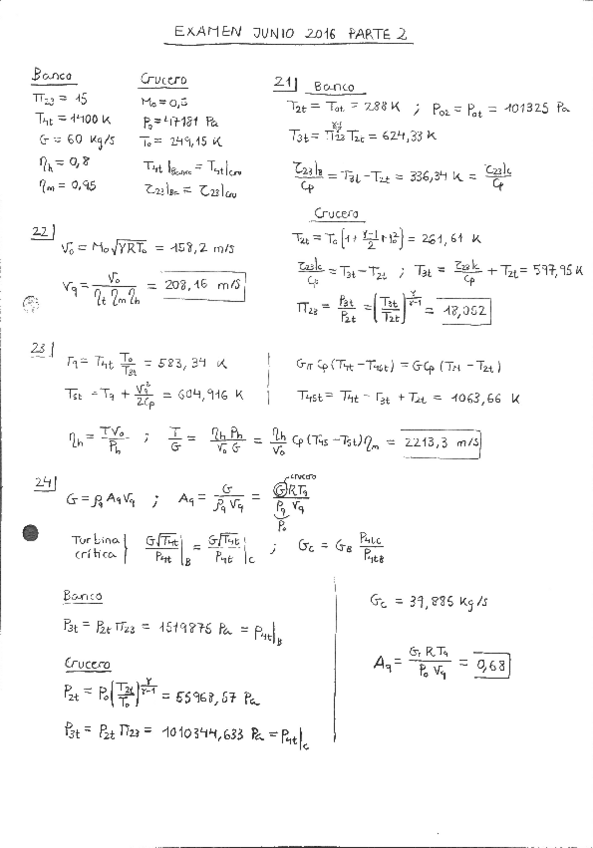 EXAMEN JUNIO 2016 PARTE 2
Banco
π23 = 15
T4t = 1400 K
G = 60 Kg/s
ηh = 0,8
ηm = 0,95
Crucero
M0 = 0,5
P0 = 47181 Pa
T0 = 249,15 K
T4t|Banco = T4t|cru
τ23|Ba = τ23|cru
21| Banco
T2t = T0t = 288 K ; P02 = P0t = 101325 Pa
T3t = π23^(γ-1/γ) T2t = 624,33 K
τ23|B/Cp = T3t - T2t = 336,34 K = τ23|c/Cp
Crucero
T2t = T0 [1 + (γ-1)/2 M0²] = 261,61 K
τ23|c/Cp = T3t - T2t ; T3t = τ23|c/Cp + T2t = 597,95 K
π23 = P3t/P2t = (T3t/T2t)^(γ/γ-1) = 18,052
22|
V0 = M0 √γRT0 = 158,2 m/s
V9 = V0/(ηt ηm ηh) = 208,16 m/s
23|
T9 = T4t T0/T3t = 583,34 K
T5t = T9 + V9²/2Cp = 604,916 K
Gπ Cp (T4t - T45t) = G Cp (T3t - T2t)
T45t = T4t - T3t + T2t = 1063,66 K
ηh = TV0/Ph ; T/G = ηh Ph/(V0 G) = ηh/V0 Cp (T45 - T5t) ηm = 2213,3 m/s
24|
G = ρ9 A9 V9 ; A9 = G/(ρ9 V9) = G R T9/(P9 V9)
crucero
P0
Turbina crítica } G√T4t/P4t |B = G√T4t/P4t |C ; GC = GB P4tC/P4tB
Banco
P3t = P2t π23 = 1519875 Pa = P4t|B
Crucero
P2t = P0 (T2t/T0)^(γ/γ-1) = 55968,57 Pa
P3t = P2t π23 = 1010344,633 Pa = P4t|C
GC = 39,885 Kg/s
A9 = G R T9/(P0 V9) = 0,68